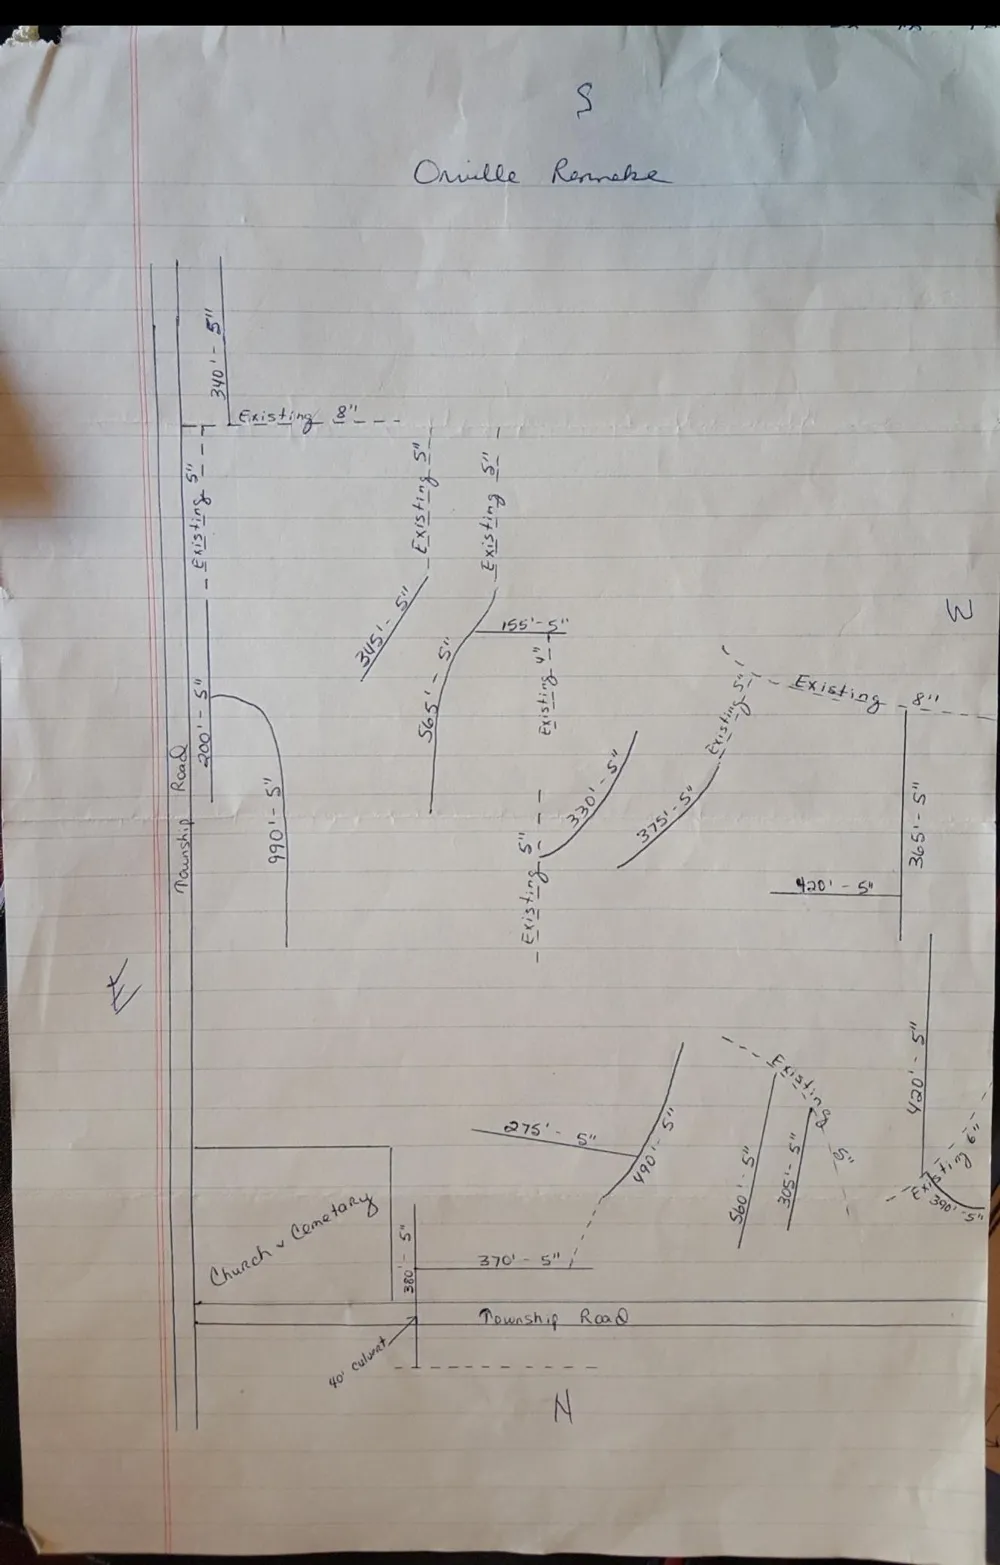 S
Orville Rennake
340' - 5"
Existing 8"
Existing 5"
Existing 5"
Existing 5"
345' - 5"
155' - 5"
565' - 5"
Existing 4"
W
200' - 5"
Existing 5"
Existing 8"
990' - 5"
330' - 5"
375' - 5"
365' - 5"
Township Road
Existing 5"
420' - 5"
E
420' - 5"
Existing 5"
275' - 5"
490' - 5"
560' - 5"
305' - 5"
Existing 6"
390' - 5"
Church & Cemetary
380' - 5"
370' - 5"
Township Road
40' culvert
N